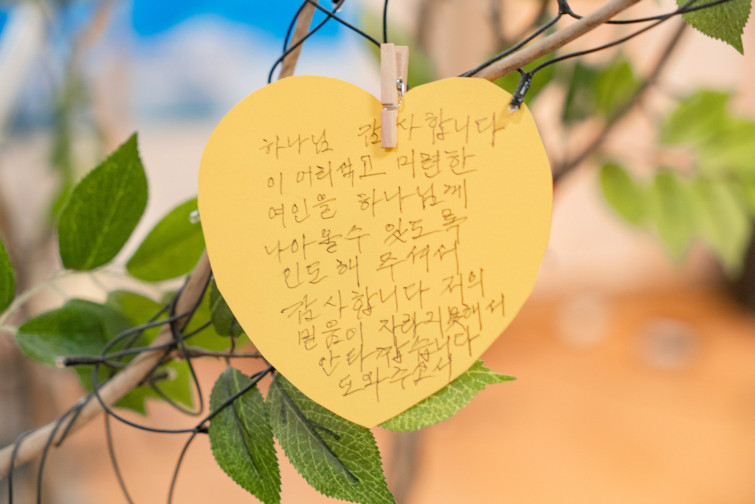 하나님 감사합니다
이 어리석고 미련한
여인을 하나님께
나아올수 있도록
인도해 주셔서
감사합니다 저의
믿음이 자라지못해서
안타깝습니다
도와주소서